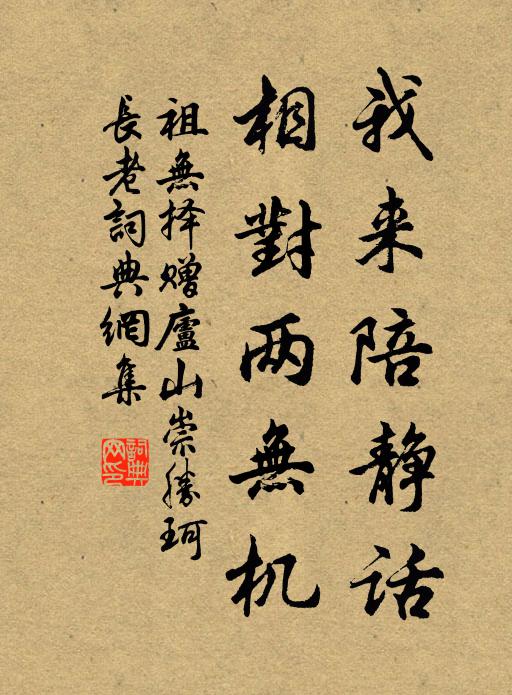 我来陪静话
相對两無机
祖無择赠廬山崇勝珂
長老詞典網集
詞典网印